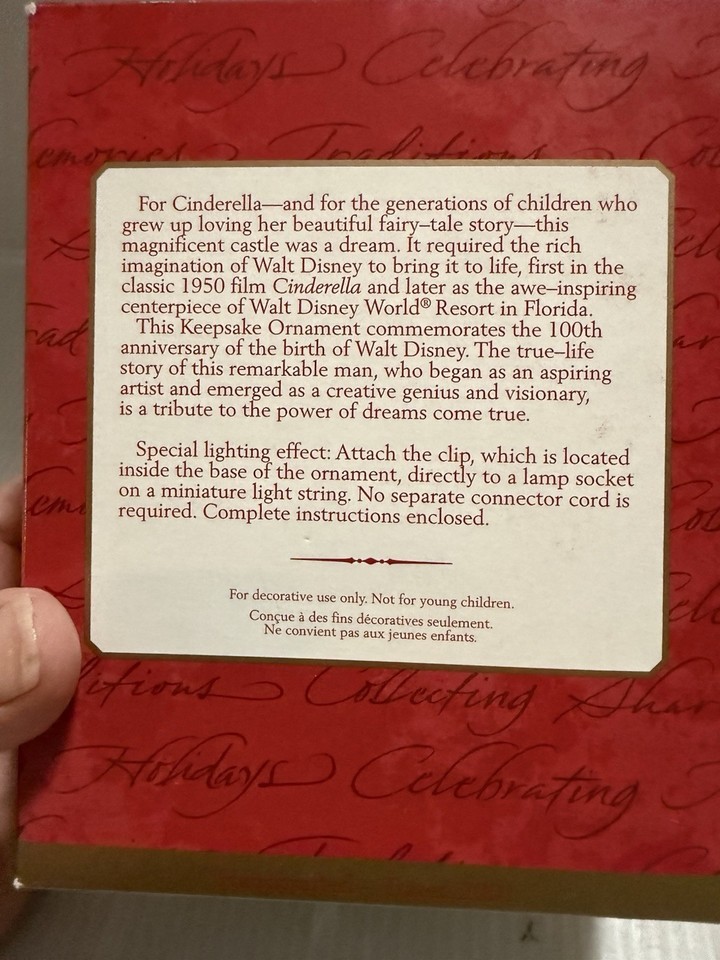 Holidays Celebrating
emories Traditions Co
For Cinderella—and for the generations of children who
grew up loving her beautiful fairy–tale story—this
magnificent castle was a dream. It required the rich
imagination of Walt Disney to bring it to life, first in the
classic 1950 film Cinderella and later as the awe–inspiring
centerpiece of Walt Disney World® Resort in Florida.
This Keepsake Ornament commemorates the 100th
anniversary of the birth of Walt Disney. The true–life
story of this remarkable man, who began as an aspiring
artist and emerged as a creative genius and visionary,
is a tribute to the power of dreams come true.
Special lighting effect: Attach the clip, which is located
inside the base of the ornament, directly to a lamp socket
on a miniature light string. No separate connector cord is
required. Complete instructions enclosed.
For decorative use only. Not for young children.
Conçue à des fins décoratives seulement.
Ne convient pas aux jeunes enfants.
itions Collecting Shar
Holidays Celebrating